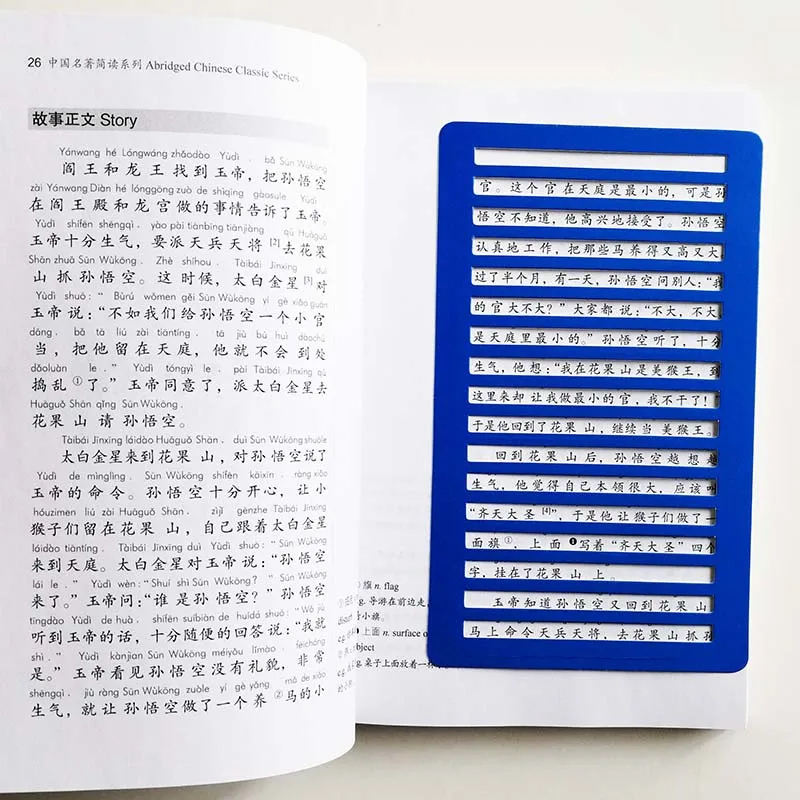 26 中国名著简读系列 Abridged Chinese Classic Series
故事正文 Story
Yánwang hé Lóngwáng zhǎodào Yùdì, bǎ Sūn Wùkōng
阎王和龙王找到玉帝,把孙悟空
zài Yánwang Diàn hé lónggōng zuò de shìqing gàosule Yùdì.
在阎王殿和龙宫做的事情告诉了玉帝。
Yùdì shífēn shēngqì, yào pài tiānbīng tiānjiàng qù Huāguǒ
玉帝十分生气,要派天兵天将[2]去花果
Shān zhuā Sūn Wùkōng. Zhè shíhou, Tàibái Jīnxīng duì
山抓孙悟空。这时候,太白金星[3]对
Yùdì shuō: “Bùrú wǒmen gěi Sūn Wùkōng yí gè xiǎo guān
玉帝说:“不如我们给孙悟空一个小官
dāng, bǎ tā liú zài tiāntíng, tā jiù bú huì dàochù
当,把他留在天庭,他就不会到处
dǎoluàn le.” Yùdì tóngyì le, pài Tàibái Jīnxīng qù
捣乱①了。”玉帝同意了,派太白金星去
Huāguǒ Shān qǐng Sūn Wùkōng.
花果山请孙悟空。
Tàibái Jīnxīng láidào Huāguǒ Shān, duì Sūn Wùkōng shuōle
太白金星来到花果山,对孙悟空说了
Yùdì de mìnglìng. Sūn Wùkōng shífēn kāixīn, ràng xiǎo
玉帝的命令。孙悟空十分开心,让小
hóuzimen liú zài Huāguǒ Shān, zìjǐ gēnzhe Tàibái Jīnxīng
猴子们留在花果山,自己跟着太白金星
láidào tiāntíng. Tàibái Jīnxīng duì Yùdì shuō: “Sūn Wùkōng
来到天庭。太白金星对玉帝说:“孙悟空
lái le.” Yùdì wèn: “Shuí shì Sūn Wùkōng?” Sūn Wùkōng
来了。”玉帝问:“谁是孙悟空?”孙悟空
tīngdào Yùdì de huà, shífēn suíbiàn de huídá shuō: “Wǒ jiù
听到玉帝的话,十分随便的回答说:“我就
shì.” Yùdì kànjiàn Sūn Wùkōng méiyǒu lǐmào, fēicháng
是。”玉帝看见孙悟空没有礼貌,非常
shēngqì, jiù ràng Sūn Wùkōng zuòle yí gè yǎng mǎ de xiǎo
生气,就让孙悟空做了一个养②马的小
官。这个官在天庭是最小的,可是孙
悟空不知道,他高兴地接受了。孙悟空
认真地工作,把那些马养得又高又大
过了半个月,有一天,孙悟空问别人:“我
的官大不大?”大家都说:“不大,不大
是天庭里最小的。”孙悟空听了,十分
生气,他想:“我在花果山是美猴王,到
这里来却让我做最小的官,我不干了!
于是他回到了花果山,继续当美猴王。
回到花果山后,孙悟空越想越
生气,他觉得自己本领很大,应该叫
“齐天大圣[4]”,于是他让猴子们做了一
面旗①,上面❶写着“齐天大圣”四个
字,挂在了花果山上。
玉帝知道孙悟空又回到花果山
马上命令天兵天将,去花果山抓孙
① 旗 n. flag
e.g. 导游在前边走
小旗。
❶ 上面 n. surface o
object
e.g. 桌子上面放着一杯